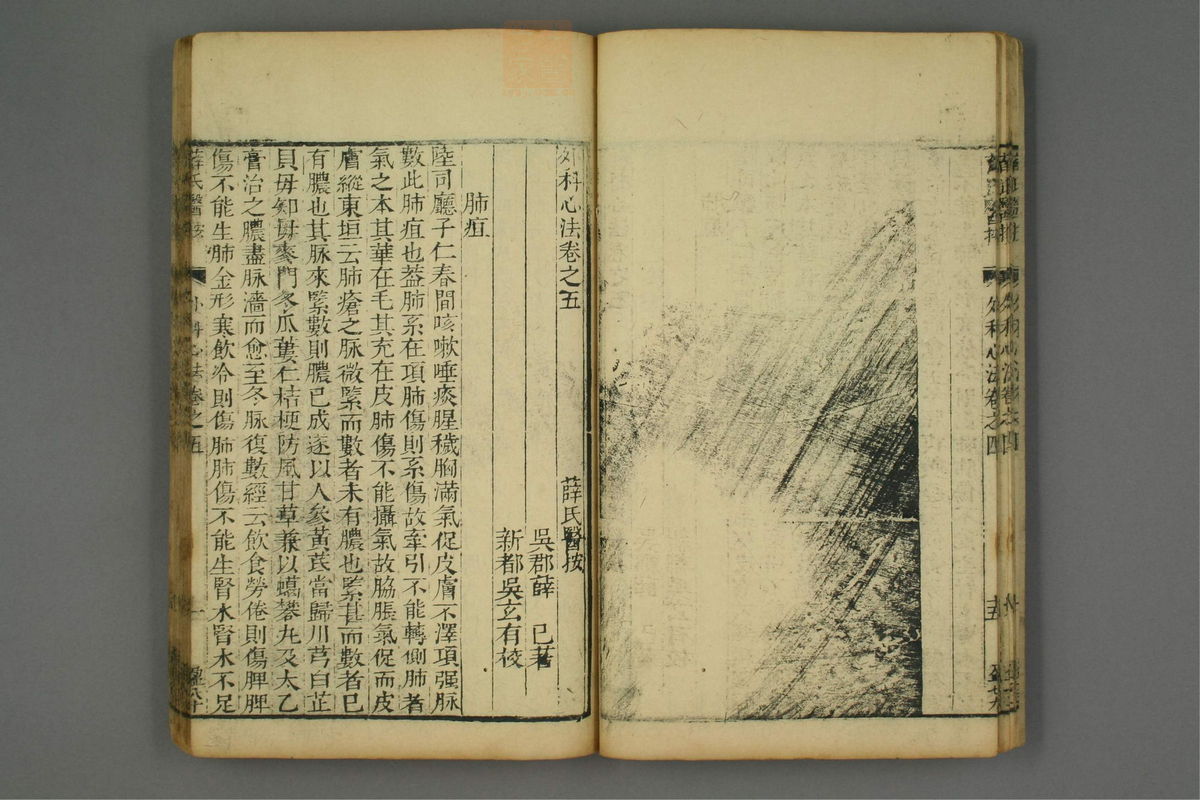 外科心法卷之四
外科心法卷之五
薛氏醫按
吳郡薛 已著
新都吳玄有校
肺疽
陸司廳子仁春間咳嗽唾痰腥穢胸滿氣促皮膚不澤項强脉
數此肺疽也葢肺系在項肺傷則系傷故牽引不能轉側肺者
氣之本其華在毛其充在皮肺傷不能攝氣故脇脹氣促而皮
膚縱東垣云肺瘡之脉微緊而數者未有膿也緊甚而數者已
有膿也其脉來緊數則膿已成遂以人參黃芪當歸川芎白芷
貝母知母麥門冬瓜蔞仁桔梗防風甘草兼以蠟礬丸及太乙
膏治之膿盡脉濇而愈至冬脉復數經云飲食勞倦則傷脾脾
傷不能生肺金形寒飲冷則傷肺肺傷不能生腎水腎水不足
薛氏醫按
外科心法卷之五
一